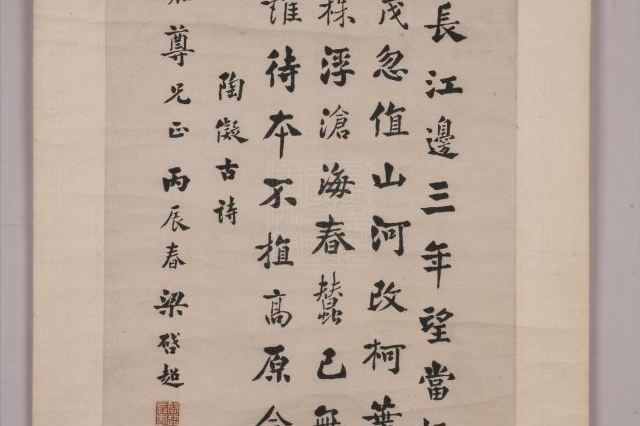 長江邊三年望當
茂忽值山河改柯葉
株浮滄海春蠶已無
誰待本不植高原今
陶擬古詩
尊兄正丙辰春梁啓超